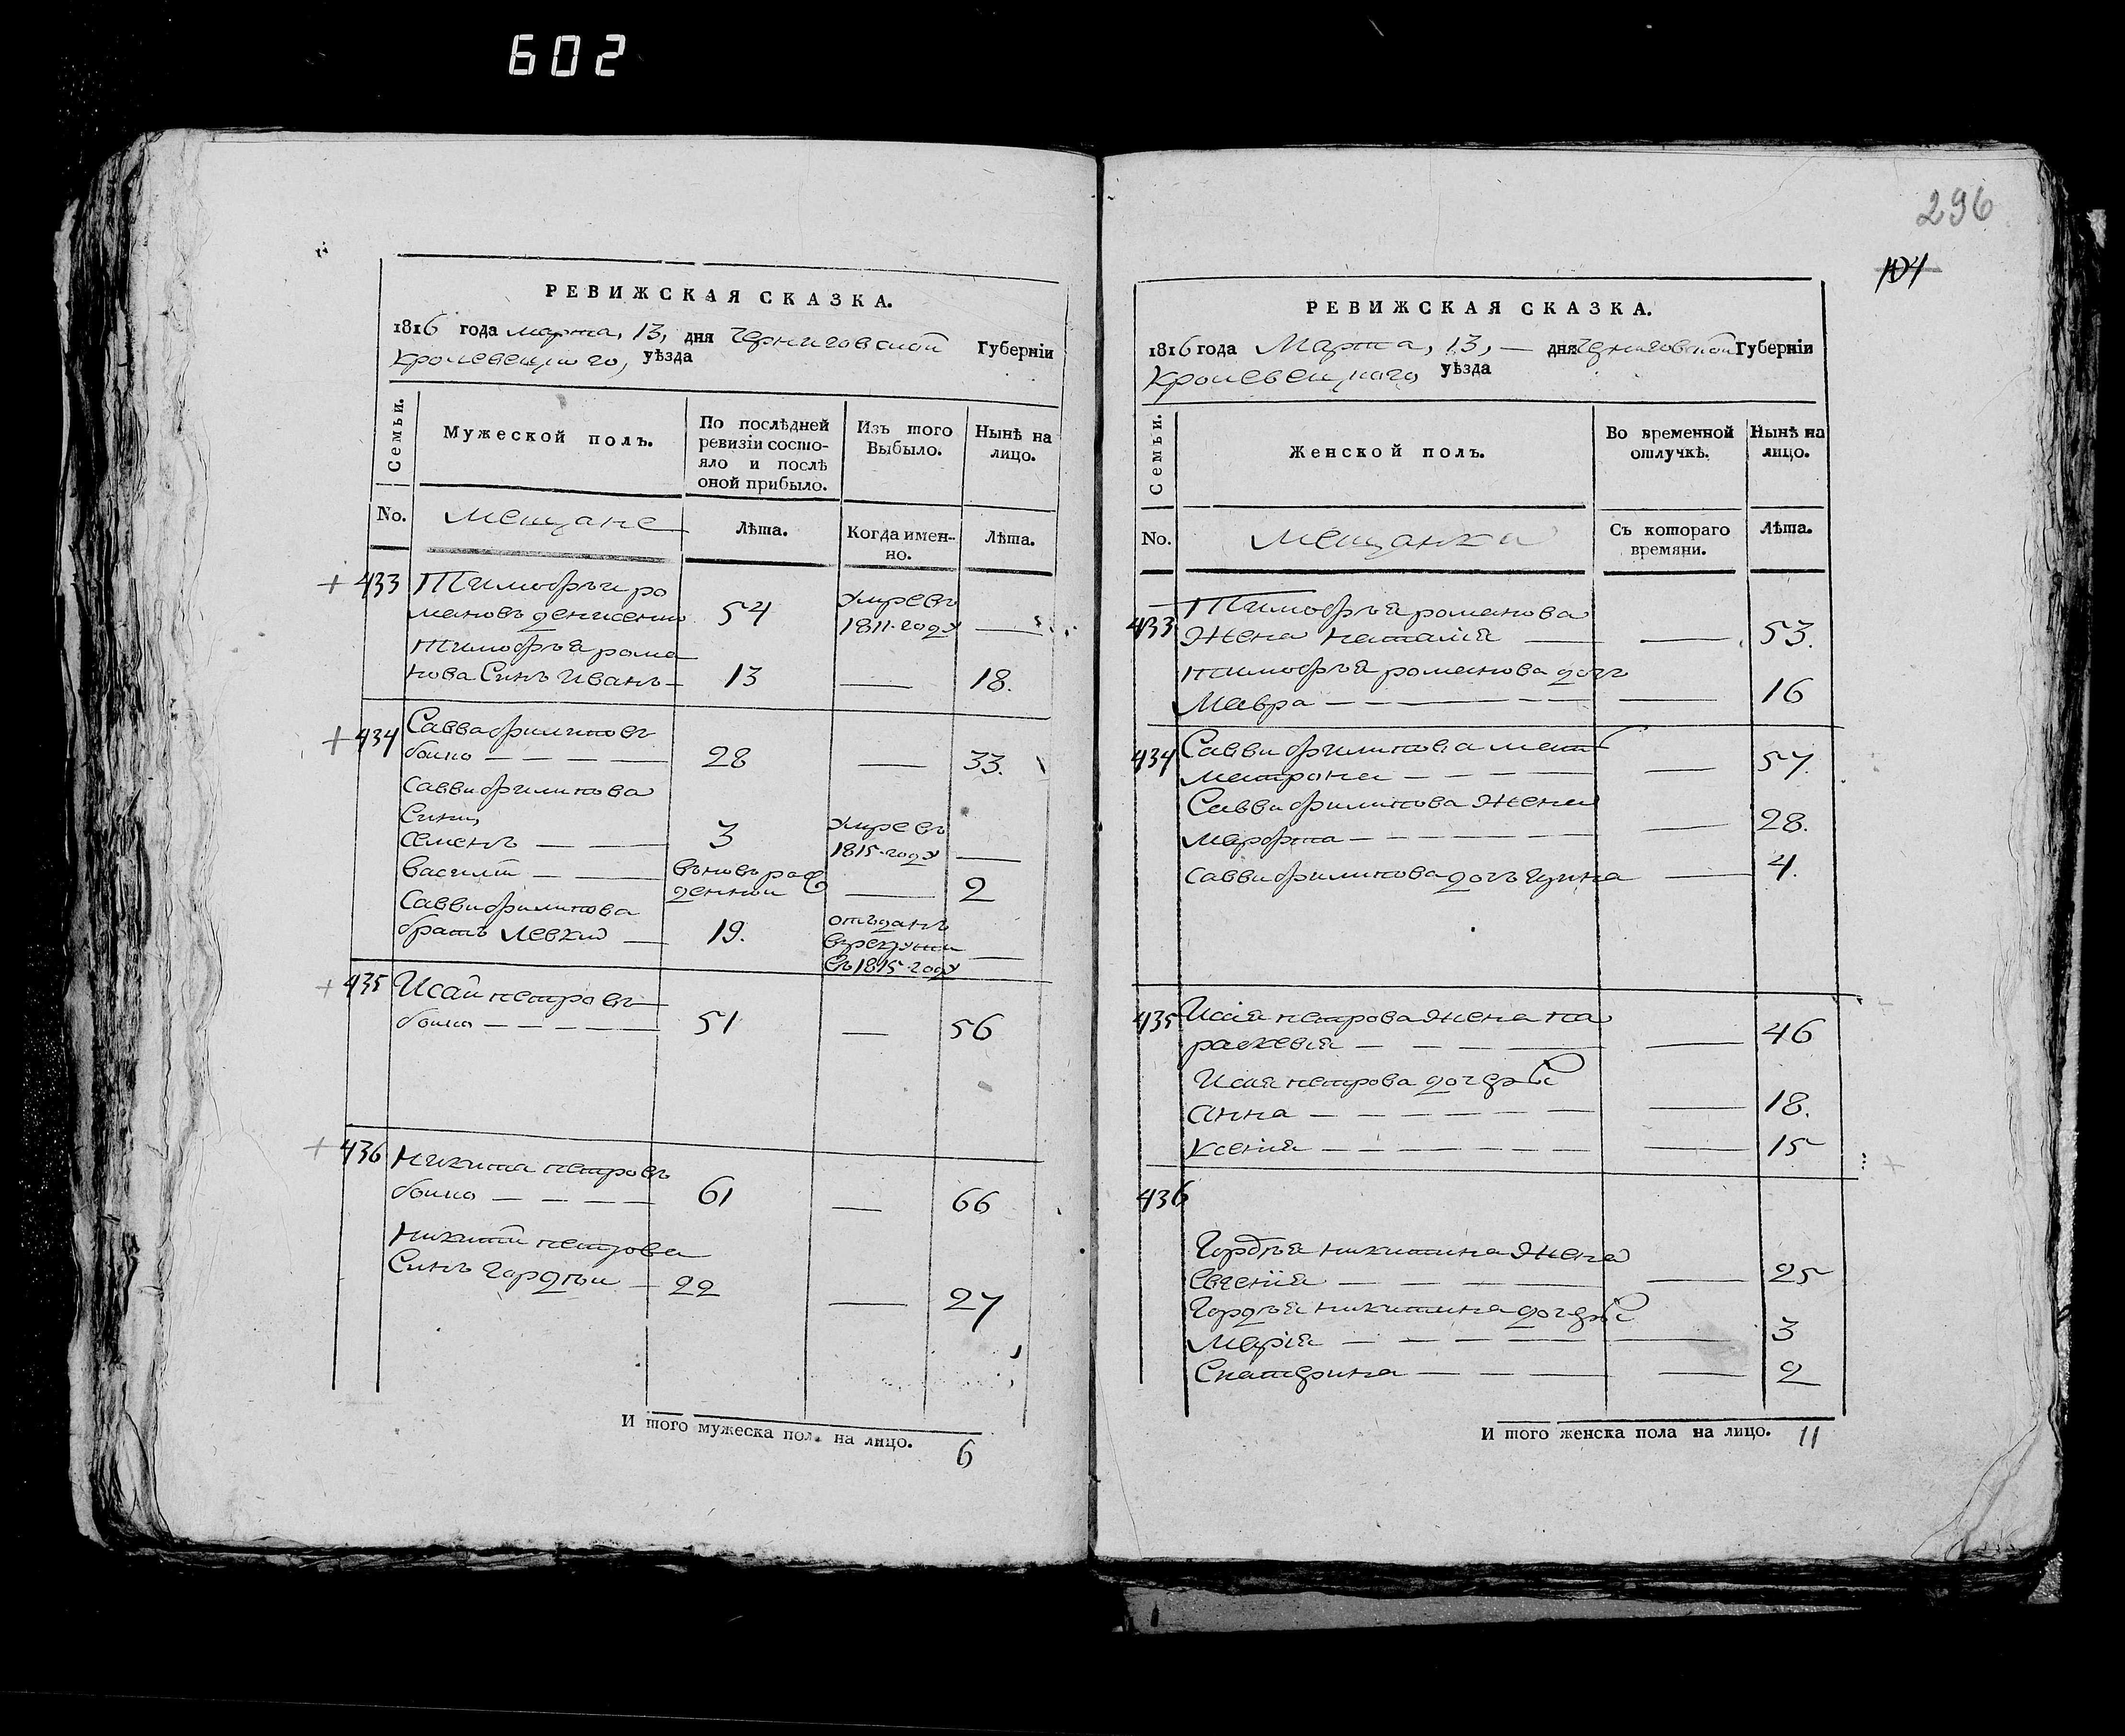 602
РЕВИЖСКАЯ СКАЗКА.
1816 года марта, 13, дня Черниговской Губерніи
Кролевецкого, уѣзда
Семьи.
Мужеской полъ.
По послѣдней
ревизіи состо-
яло и послѣ
оной прибыло.
Изъ того
Выбыло.
Нынѣ на
лицо.
No.
мещане
Лѣта.
Когда имен-
но.
Лѣта.
+ 433 Тимофѣй ро
мановъ денисенко 54 умре въ 1811 году —
Тимофѣя рома
нова Синъ Иванъ — 13 — 18.
+ 434 Савва филиповъ
боико — — — — 28 — 33.
Саввы филипова
Сини,
Семенъ — — 3 умре въ 1815 году —
василій — — вьновь рож
денной — 2
Саввы филипова
братъ Левкій — 19. отъданъ
в рекруты
въ 1815 году —
+ 435 Исай петровъ
боико — — — — 51 — 56
+ 436 Никита петровъ
боико — — — — 61 — 66
Никиты петрова
Синъ Гордѣи — 22 — 27
И того мужеска пол. на лицо. 6
296
104
РЕВИЖСКАЯ СКАЗКА.
1816 года Марта, 13, — дня Черниговской Губерніи
Кролевецкого уѣзда
Семьи.
Женской полъ.
Во временной
отлучкѣ.
Нынѣ на
лицо.
No.
мещанки
Съ котораго
времяни.
Лѣта.
433 Тимофѣя романова
Жена наталія — — 53.
тимофѣя романова дочъ
Мавра — — — — — — 16
434 Саввы филипова мать
матрона — — — — — 57.
Саввы филипова жена
марфта — — — — — 28.
Саввы филипова дочъ — 4.
435 Исая петрова жена па
раскевія — — — — — 46
Исая петрова дочери
анна — — — — — — 18.
ксенія — — — — — — 15
436
Гордѣя никитина жена
Евгенія — — — — — 25
Гордѣя никитина дочери
Марія — — — — — — 3
Екатерина — — — — 2
И того женска пола на лицо. 11